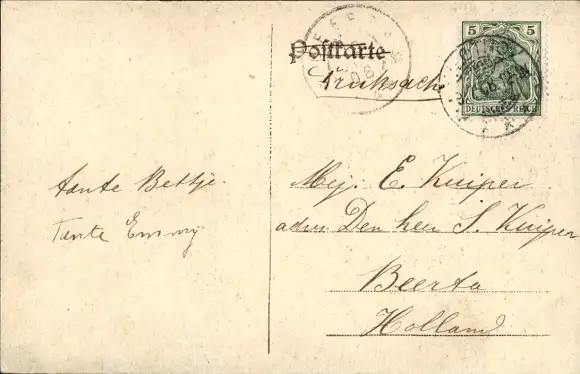 Postkarte
Drucksache
5 5
DEUTSCHES REICH
tante Bettje.
Tante Emmy.
Mej. E. Kuiper
adres Den heer S. Kuiper
Beerta
Holland